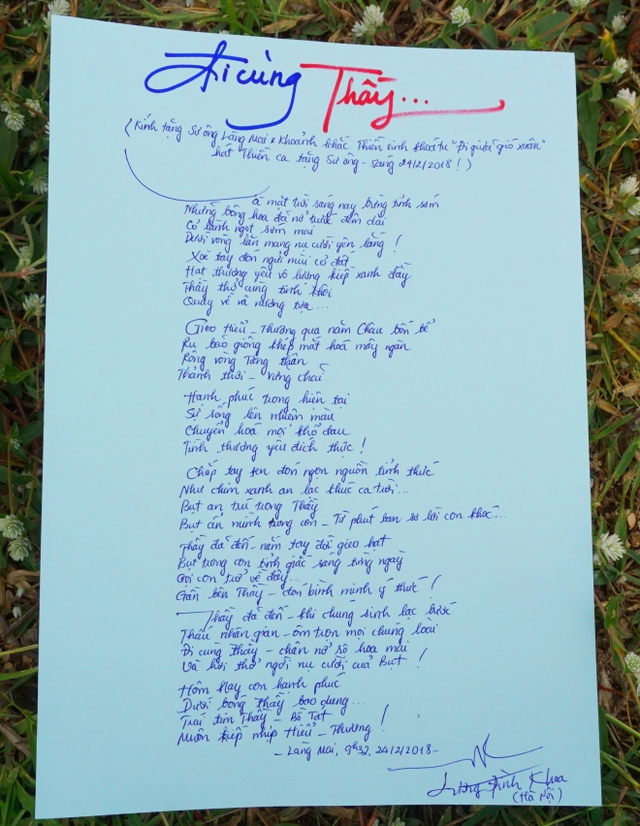 Đi cùng Thầy...
(Kính tặng Sư ông Làng Mai & Khoảnh khắc Thiền sinh khoá tu "Đi giữa gió xuân"
hát Thiền ca tặng Sư ông - sáng 24/2/2018!)
mặt trời sáng nay bừng tỉnh sớm
Những bông hoa đã nở trước đêm dài
Cỏ lành ngọt sớm mai
Dưới vòng lăn mang nụ cười yên lặng!
Xoè tay đón người mùi cỏ đất
Hạt thương yêu vô lượng kiếp xanh đầy
Thầy thở cùng tinh khôi
Quay về và nương tựa...
Gieo Hiểu - Thương qua năm Châu bốn bể
Ru bão giông khép mắt hoá mây ngàn
Rộng vòng Tăng thân
Thảnh thơi - vững chãi
Hạnh phúc trong hiện tại
Sự sống lên nhiệm màu
Chuyển hoá mọi khổ đau
Tình thương yêu đích thực!
Chắp tay sen đón ngọn nguồn tỉnh thức
Như chim xanh an lạc khúc ca trời...
Bụt an trú trong Thầy
Bụt ẩn mình trong con - Từ phút ban sơ lời con khóc...
Thầy đã đến nắm tay đời gieo hạt
Bụt trong con tỉnh giấc sáng từng ngày
Gọi con trở về đây...
Gần bên Thầy - đón bình minh ý thức!
Thầy đã đến - khi chúng sinh lạc bước
Thấu nhân gian - ôm trọn mọi chúng loài
Đi cùng Thầy - chân nở rộ hoa mai
Và hơi thở ngời nụ cười của Bụt!
Hôm Nay con hạnh phúc
Dưới bóng Thầy bao dung...
Trái tim Thầy - Bồ Tát
Muôn kiếp nhịp Hiểu - Thương!
- Làng Mai, 9h32, 24/2/2018 -
Lương Đình Khoa
(Hà Nội)